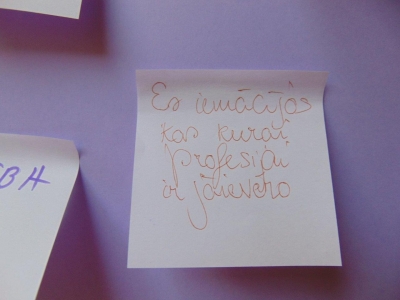 Es iemācijos
kas kurai
profesijai
ir jāievēro
BH